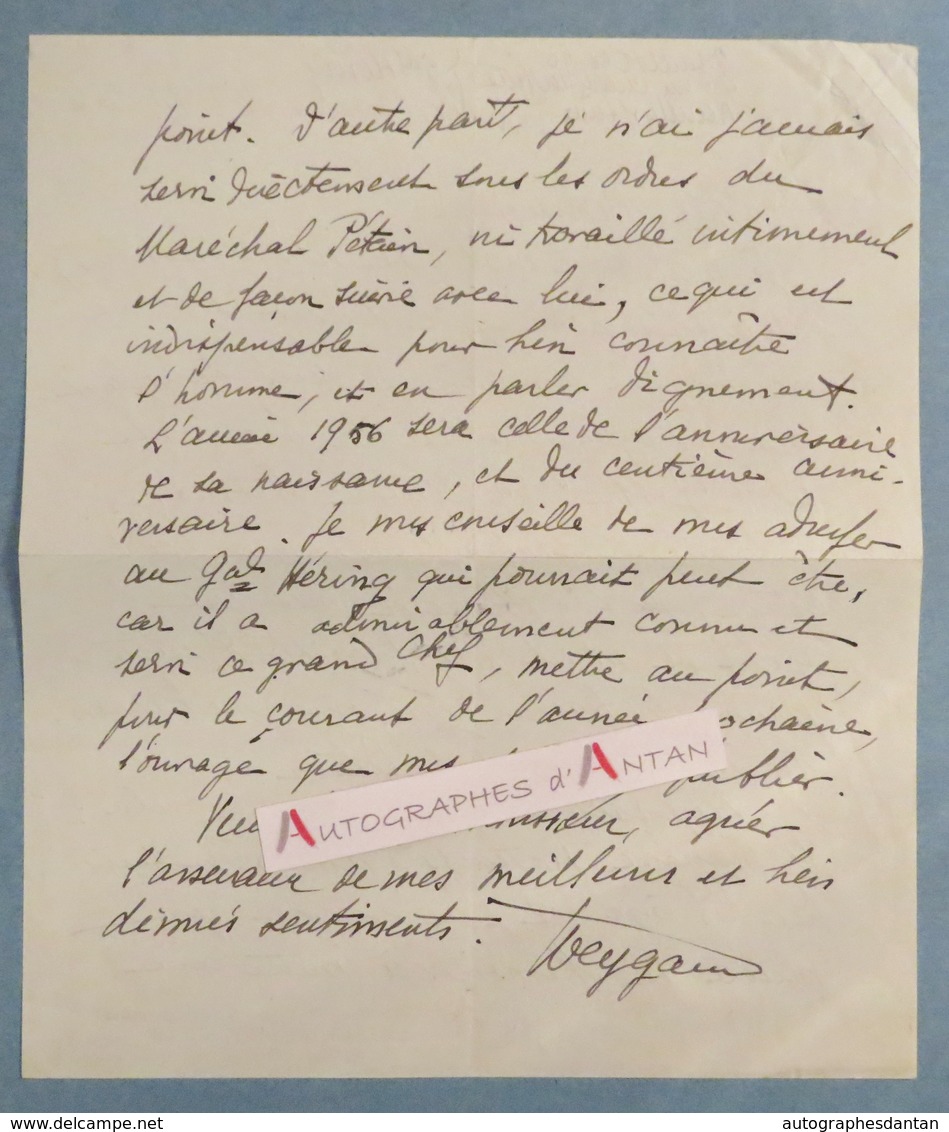 point. D'autre part, je n'ai jamais
servi directement sous les ordres du
Maréchal Pétain, ni travaillé intimement
et de façon suivie avec lui, ce qui est
indispensable pour bien connaître
l'homme, et en parler dignement.
L'année 1956 sera celle de l'anniversaire
de sa naissance, et du centième anni-
versaire. Je vous conseille de vous adresser
au Gal Héring qui pourrait peut être,
car il a admirablement connu et
servi ce grand Chef, mettre au point,
pour le courant de l'année prochaine,
l'ouvrage que vous publier.
AUTOGRAPHES d'ANTAN
Monsieur, agréer
l'assurance de mes meilleurs et bien
dévoués sentiments.
Weygand
www.delcampe.net
autographesdantan